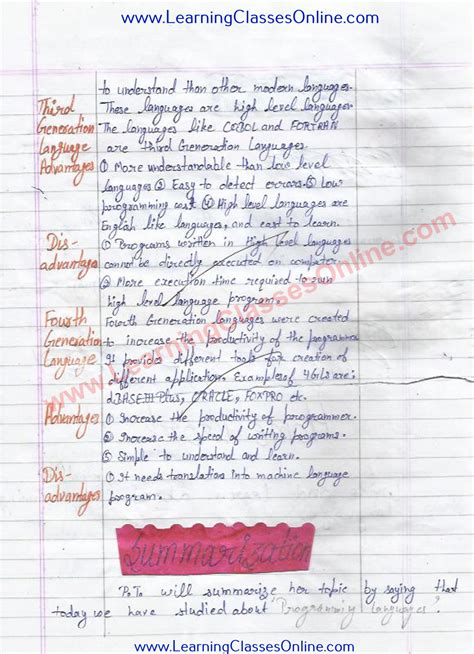 www.LearningClassesOnline.com
to understand than other modern languages.
These languages are high level languages
Third Generation Language Advantages
The languages like COBOL and FORTRAN
are third Generation Languages.
① More understandable than low level
languages ② Easy to detect errors ③ Low
programming cost ④ High level languages are
English like languages, and easy to learn.
Dis-advantages
① Programs written in High level languages
cannot be directly executed on computer.
② More execution time required to run
high level language program.
Fourth Generation Language
Fourth Generation languages were created
to increase the productivity of the programmer
It provides different tools for creation of
different application. Examples of 4GLs are:
dBASE III Plus, ORACLE, FOXPRO etc.
Advantages
① Increase the productivity of programmer.
② Increase the speed of writing programs.
③ Simple to understand and learn.
Dis-advantages
① It needs translation into machine language
program.
www.LearningClassesOnline.com
Summarization
P.T. will summarize her topic by saying that
today we have studied about 'Programming Languages'.
www.LearningClassesOnline.com